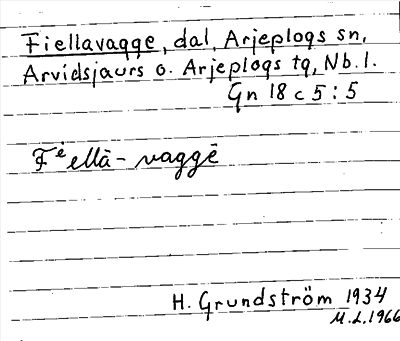 Fiellavagge, dal, Arjeplogs sn,
Arvidsjaurs o. Arjeplogs tg, Nb. l.
Gn 18 c 5 : 5
Fⁱellā - vaggē
H. Grundström 1934
M.L. 1966